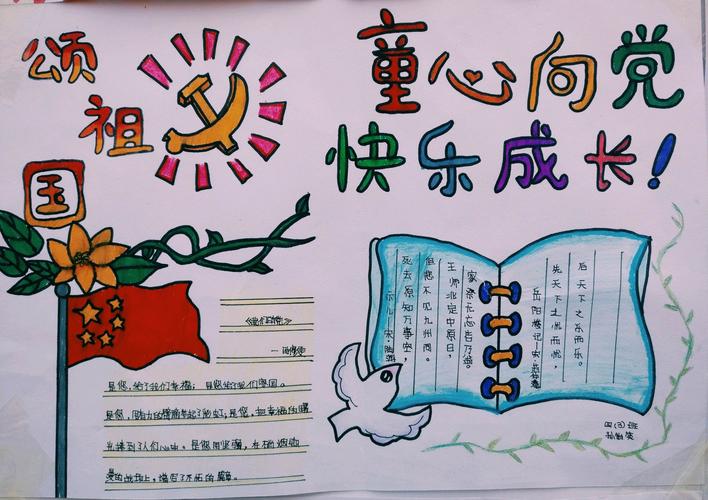 颂
祖
国
童心向党
快乐成长!
是您，给了我们幸福，是您给了我们
是您，用有力的臂膀举起了彩虹；是您，把幸福的曙
光撒到了人们心中。是您用坚强，在硝烟弥
漫的战场上，谱写了不朽的篇章。
示儿—宋·陆游
死去原知万事空，
但悲不见九州同。
王师北定中原日，
家祭无忘告乃翁。
岳阳楼记—宋·范仲淹
先天下之忧而忧，
后天下之乐而乐。
四(3)班